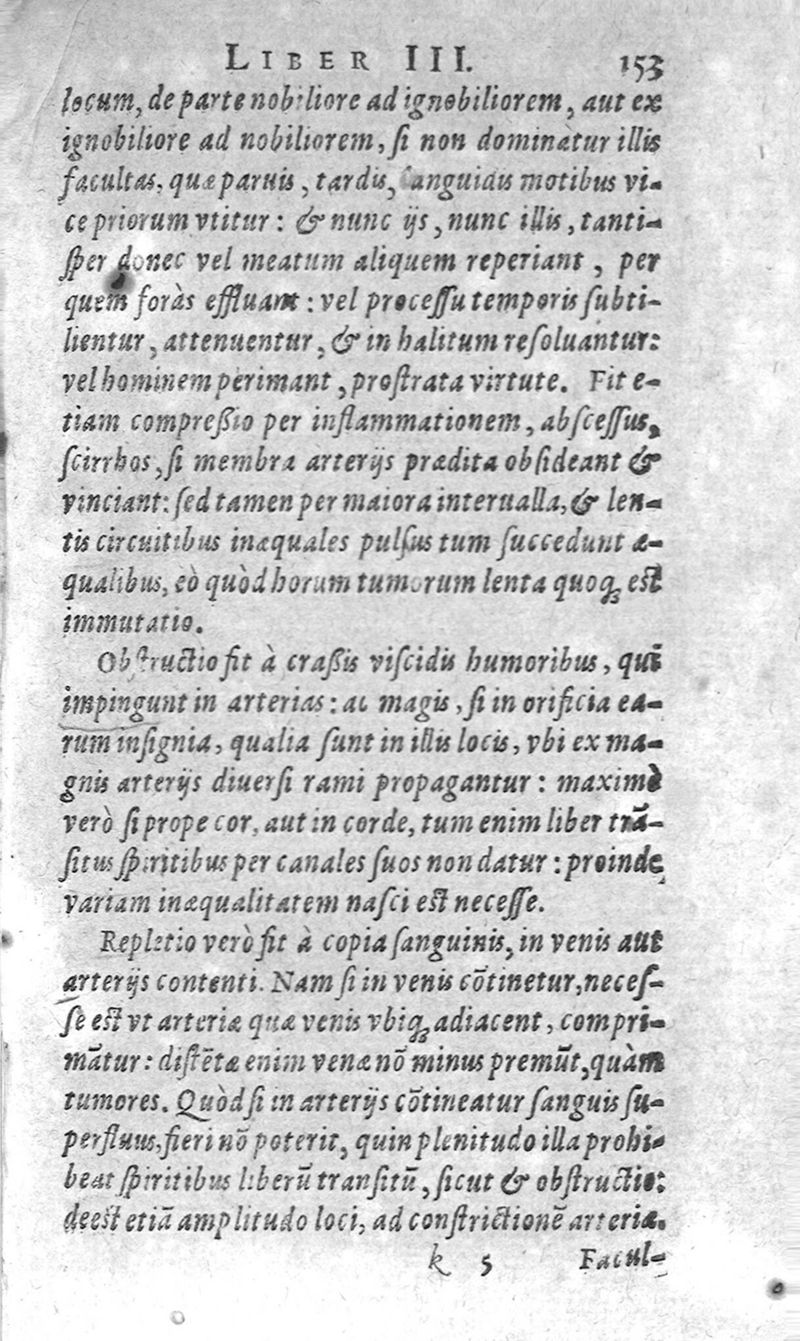 LIBER III. 153
locum, de parte nobiliore ad ignobiliorem, aut ex
ignobiliore ad nobiliorem, ſi non dominàtur illis
facultas, quæ paruis, tardis, languidis motibus vi-
ce priorum vtitur: & nunc ijs, nunc illis, tanti-
ſper donec vel meatum aliquem reperiant, per
quem foràs effluant: vel proceſſu temporis ſubti-
lientur, attenuentur, & in halitum reſoluantur:
vel hominem perimant, proſtrata virtute. Fit e-
tiam compreßio per inflammationem, abſceſſus,
ſcirrhos, ſi membra arterijs prædita obſideant &
vinciant: ſed tamen per maiora interualla, & len-
tis circuitibus inæquales pulſus tum ſuccedunt æ-
qualibus, eò quòd horum tumorum lenta quoq; eſt
immutatio.
Obſtructio fit à craßis viſcidis humoribus, qui
impingunt in arterias: ac magis, ſi in orificia ea-
rum inſignia, qualia ſunt in illis locis, vbi ex ma-
gnis arterijs diuerſi rami propagantur: maximè
verò ſi prope cor, aut in corde, tum enim liber trã-
ſitus ſpiritibus per canales ſuos non datur: proinde
variam inæqualitatem naſci eſt neceſſe.
Repletio verò fit à copia ſanguinis, in venis aut
arterijs contenti. Nam ſi in venis cõtinetur, neceſ-
ſe eſt vt arteriæ quæ venis vbiq; adiacent, compri-
mãtur: diſtẽtæ enim venæ nõ minus premũt, quàm
tumores. Quòd ſi in arterijs cõtineatur ſanguis ſu-
perfluus, fieri nõ poterit, quin plenitudo illa prohi-
beat ſpiritibus liberũ tranſitũ, ſicut & obſtructio:
deeſt etiã amplitudo loci, ad conſtrictionẽ arteriæ.
k 5 Facul-